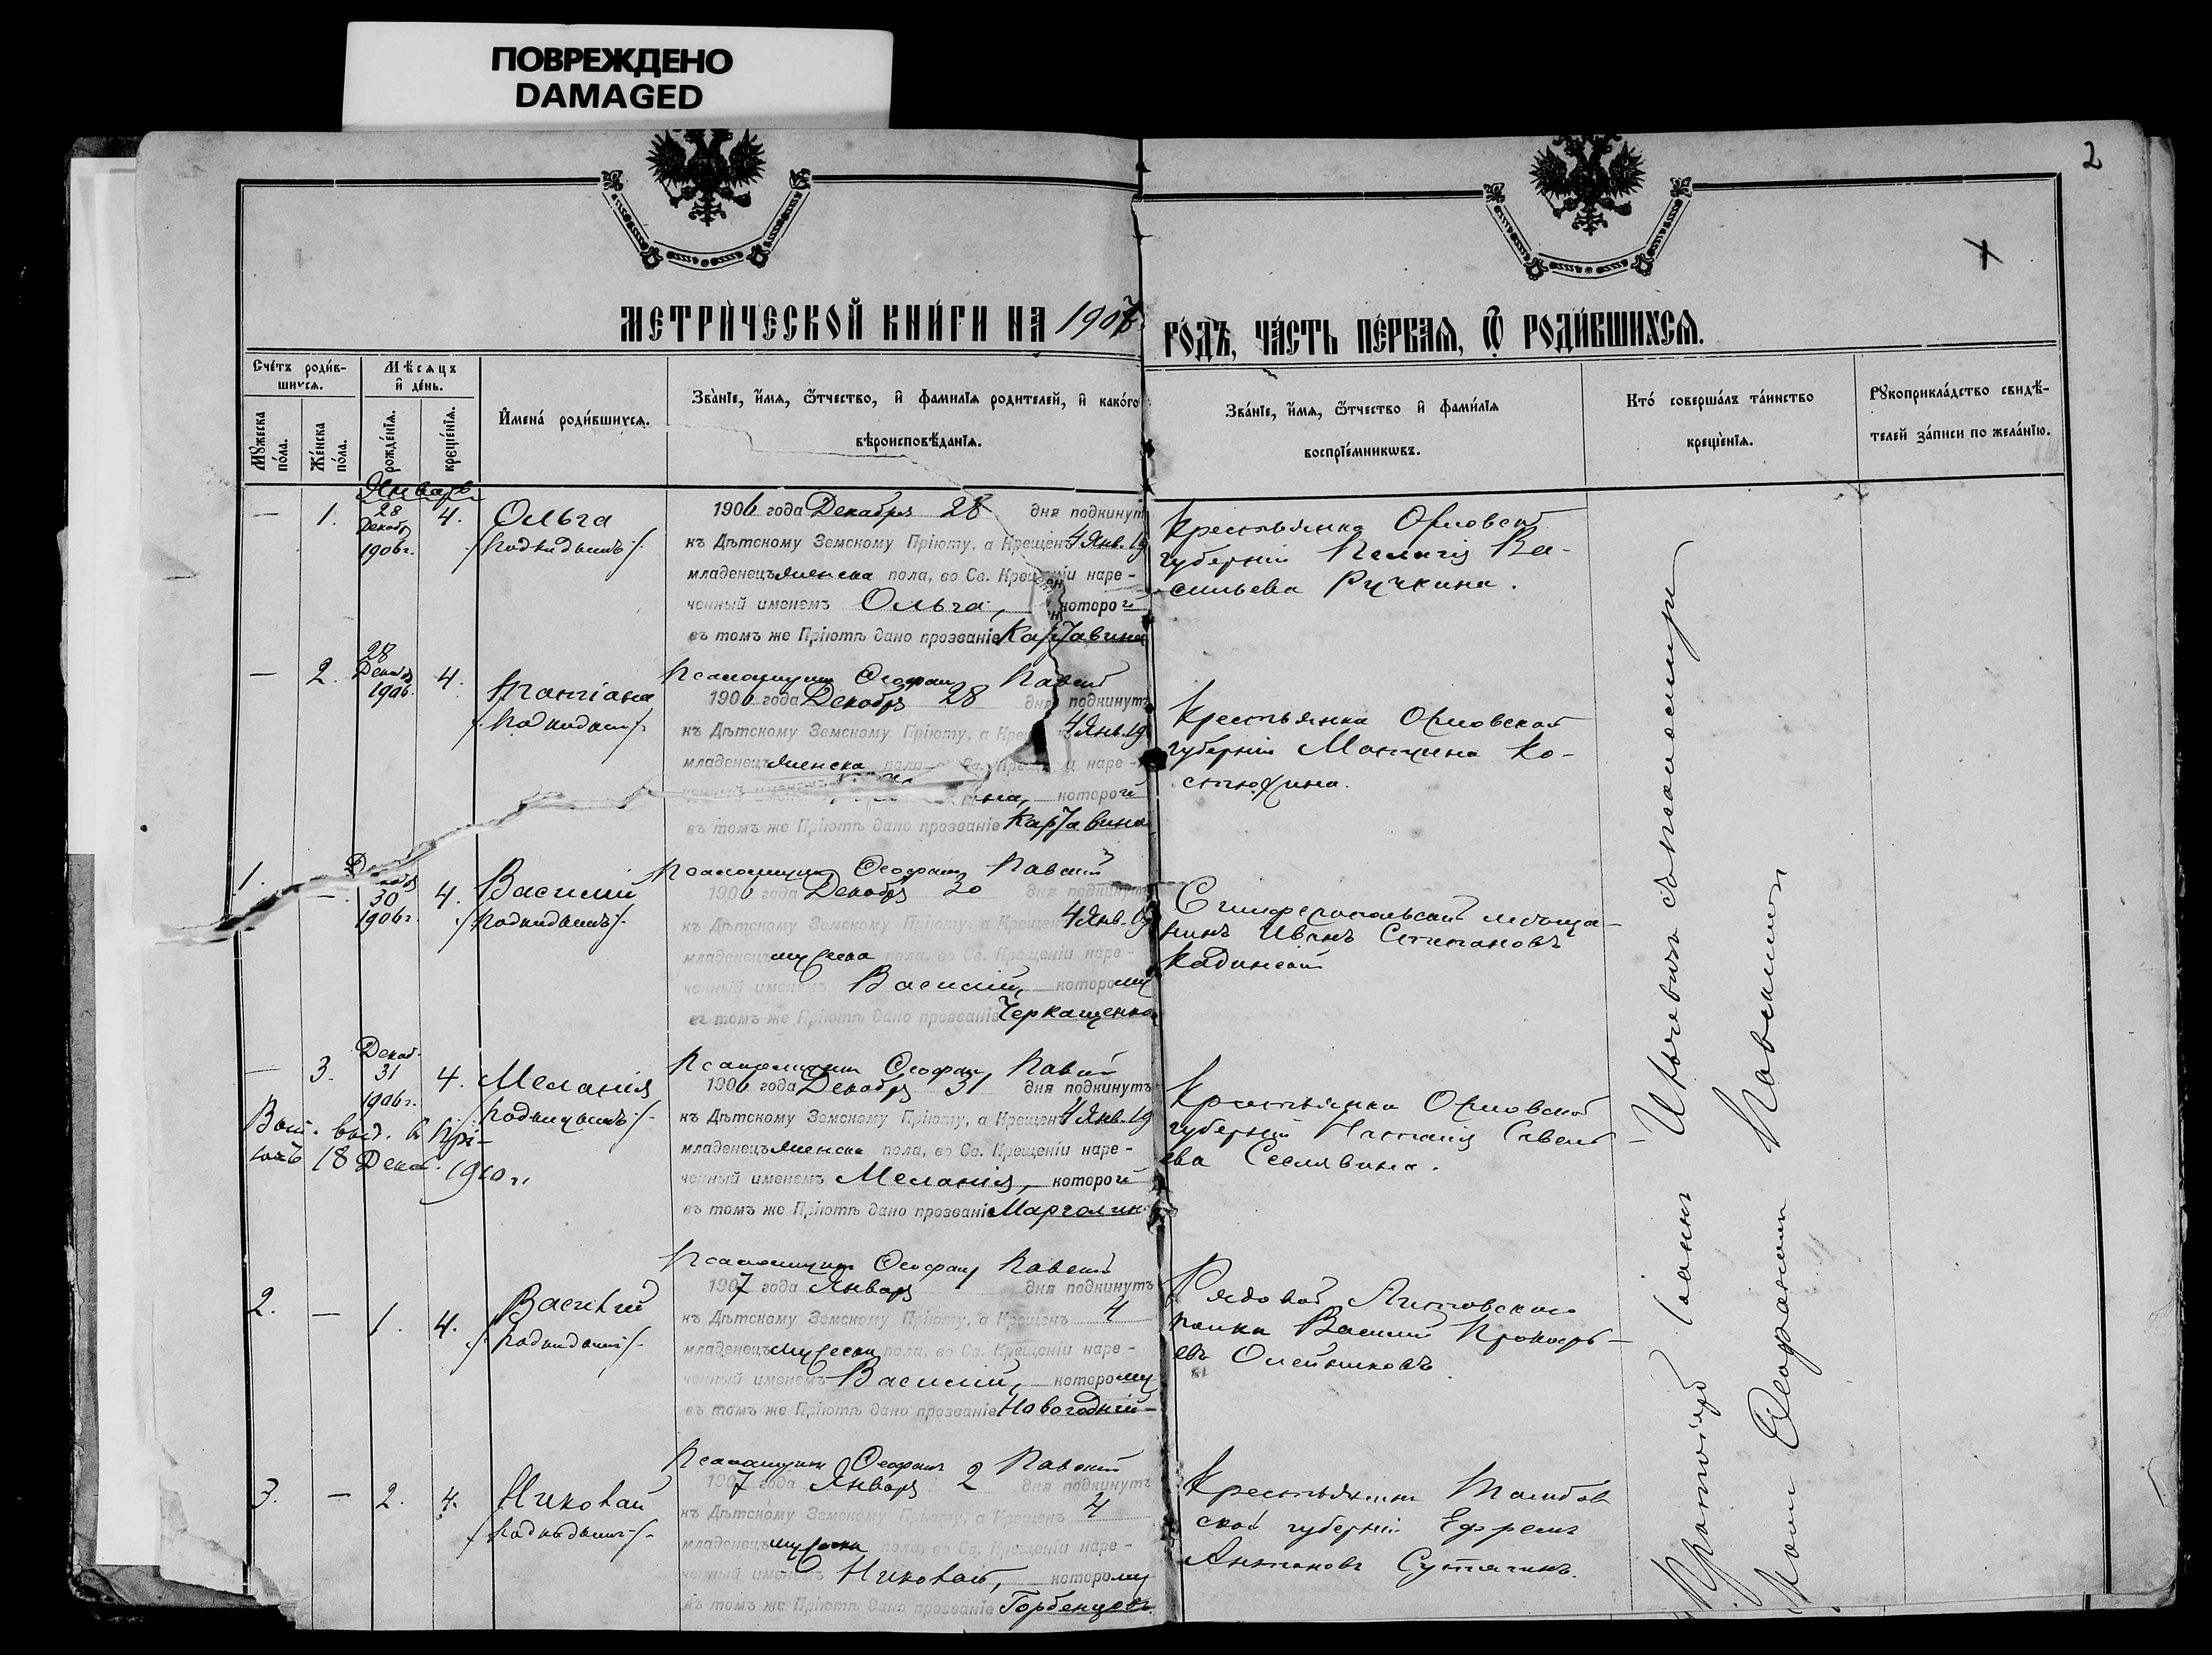 ПОВРЕЖДЕНО
DAMAGED
2
МЕТРИЧЕСКОЙ КНИГИ НА 1907 ГОДЪ, ЧАСТЬ ПЕРВАЯ, Ѿ РОДИВШИХСЯ.
Счетъ родив-
шихся.
Мѣсяцъ
и день.
Мужеска пола.
Женска пола.
рожденія.
крещенія.
Имена родившихся.
Званіе, имя, ѿтчество, и фамилія родителей, и какого
вѣроисповѣданія.
Званіе, имя, ѿтчество и фамилія
воспріемниковъ.
Кто совершалъ таинство
крещенія.
Рукоприкладство свидѣ-
телей записи по желанію.
Январь
— 1. 28 Декабр 1906 г. 4.
Ольга
/Подкидышъ/.
1906 года Декабря 28 дня подкинут
къ Дѣтскому Земскому Пріюту, а Крещенъ 4 Янв. 19
младенецъ женска пола, во Св. Крещеніи наре-
ченный именемъ Ольга, которой
въ томъ же Пріютѣ дано прозваніе Каржавина
Крестьянка Орловской
губерніи Пелагія Ва-
сильева Ручкина.
Псаломщик Феофан Павскій
— 2. 28 Декабр 1906. 4.
Татіана
/Подкидыш/.
1906 года Декабря 28 дня подкинутъ
къ Дѣтскому Земскому Пріюту, а Крещ 4 Янв. 19
младенецъ женска пола Св. Крещ и наре-
ченный именемъ на, которой
въ томъ же Пріютѣ дано прозваніе Каржавина
Крестьянка Орловской
губерніи Матрена Ко-
стюхина.
Псаломщик Феофан Павскій
1. — 30 1906 г. 4.
Василій
/Подкидышъ/.
1906 года Декабря 30 дня подкинутъ
къ Дѣтскому Земскому Пріюту, а Крещенъ 4 Янв. 19
младенецъ мужеска пола, во Св. Крещеніи наре-
ченный именемъ Василій, которому
въ томъ же Пріютѣ дано прозваніе Черкащенко
Симферопольскій мѣща-
нинъ Иванъ Степановъ
Кадинскій
Псаломщик Феофан Павскій
— 3. Декаб. 31 1906 г. 4.
Меланія
/Подкидышъ/.
1906 года Декабря 31 дня подкинутъ
къ Дѣтскому Земскому Пріюту, а Крещенъ 4 Янв. 19
младенецъ женска пола, во Св. Крещеніи наре-
ченный именемъ Меланія, которой
въ томъ же Пріютѣ дано прозваніе Марголин
Крестьянка Орловской
губерніи Савель-
ева Селявина.
выд. в Прі-
ютъ 18 Декаб. 1910 г.
Псаломщик Феофан Павскій
2. — 1. 4.
Василій
/Подкидыш/.
1907 года Января 1 дня подкинутъ
къ Дѣтскому Земскому Пріюту, а Крещенъ 4
младенецъ мужеска пола, во Св. Крещеніи наре-
ченный именемъ Василій, которому
въ томъ же Пріютѣ дано прозваніе Новогодній
Рядовой Литовскаго
полка Василій Прокофь-
евъ Олейниковъ
Псаломщик Феофан Павскій
3. — 2. 4.
Николай
/Подкидышъ/.
1907 года Января 2 дня подкинутъ
къ Дѣтскому Земскому Пріюту, а Крещенъ 4
младенецъ мужеска пола, во Св. Крещеніи наре-
ченный именемъ Николай, которому
въ томъ же Пріютѣ дано прозваніе Горбенцовъ
Крестьянин Тамбов
ской губерніи Ефрем
Антонов Сутягинъ.
Протоіерей Іоаннъ съ псаломщ
Феофаном Павскимъ